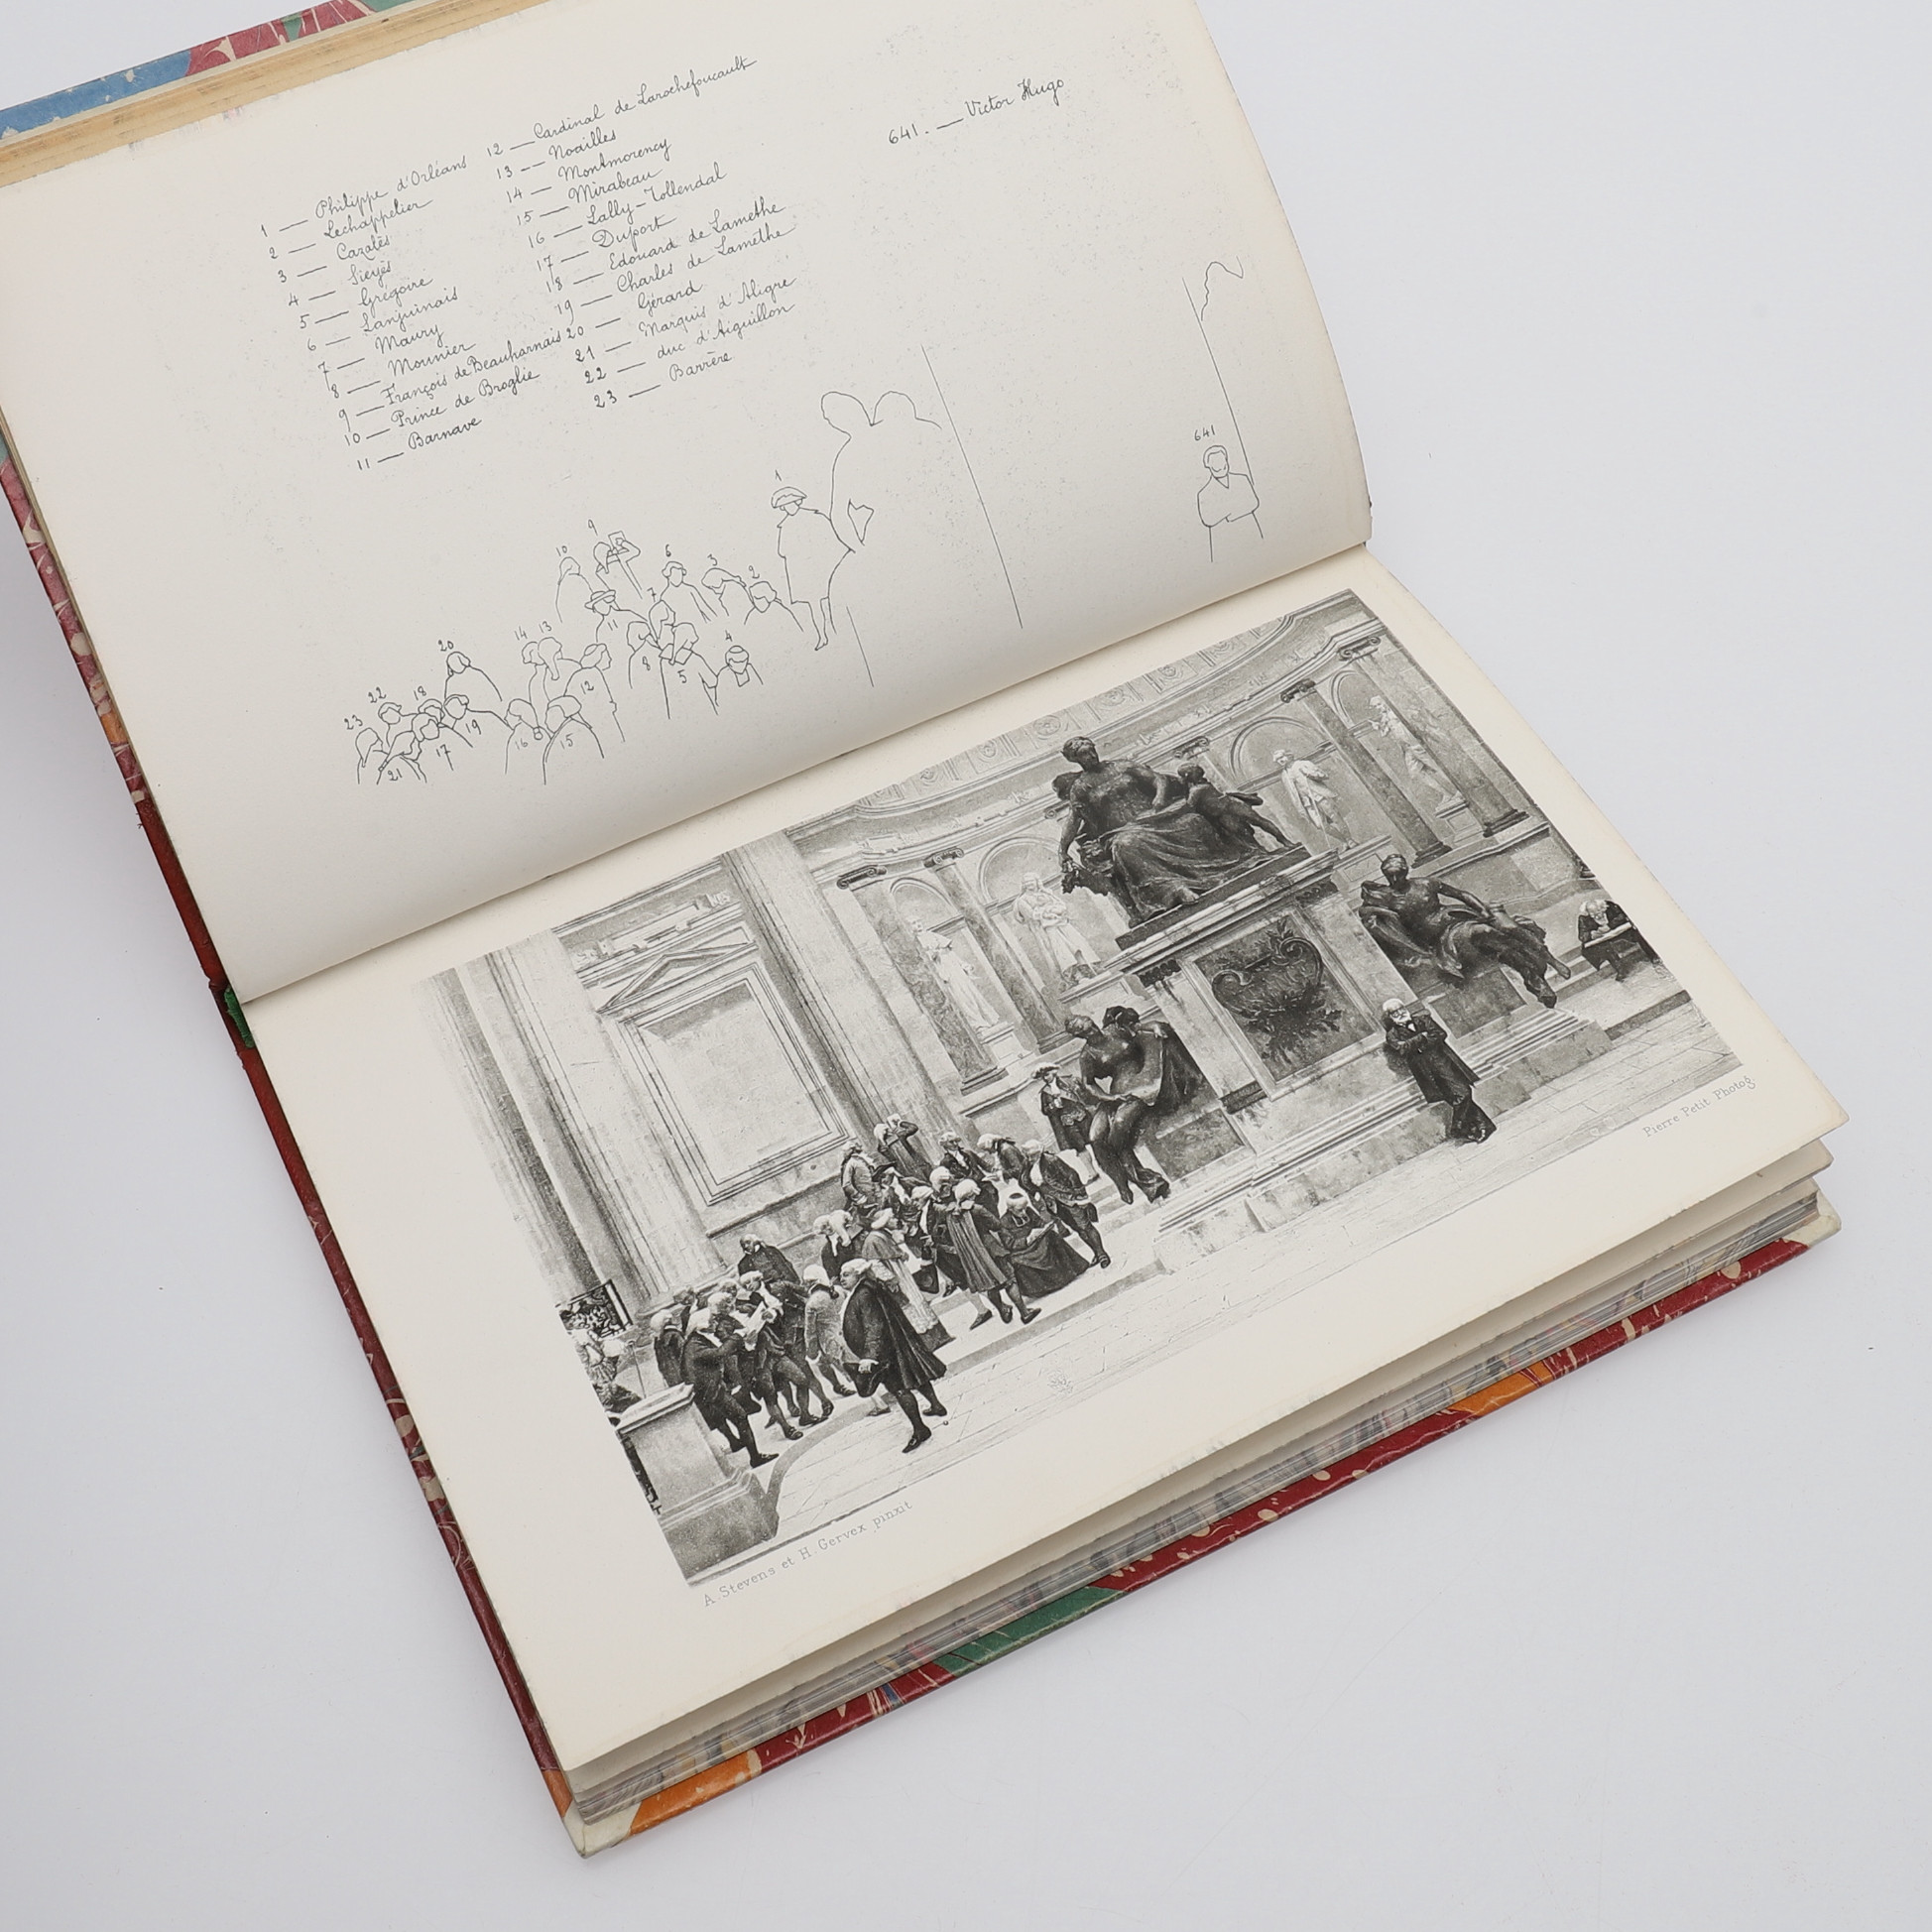 1 — Philippe d'Orléans
2 — Lechappelier
3 — Cazalès
4 — Sieyès
5 — Grégoire
6 — Lanjuinais
7 — Maury
8 — Mounier
9 — François de Beauharnais
10 — Prince de Broglie
11 — Barnave
12 — Cardinal de Larochefoucault
13 — Noailles
14 — Montmorency
15 — Mirabeau
16 — Lally-Tollendal
17 — Duport
18 — Edouard de Lamethe
19 — Charles de Lamethe
20 — Gérard
21 — Marquis d'Aligre
22 — duc d'Aiguillon
23 — Barrère
641. — Victor Hugo
641
1
9
10
6
3
2
7
11
14
13
20
4
8
5
12
22
18
23
19
17
16
15
21
A. Stevens et H. Gervex pinxit
Pierre Petit Photog.